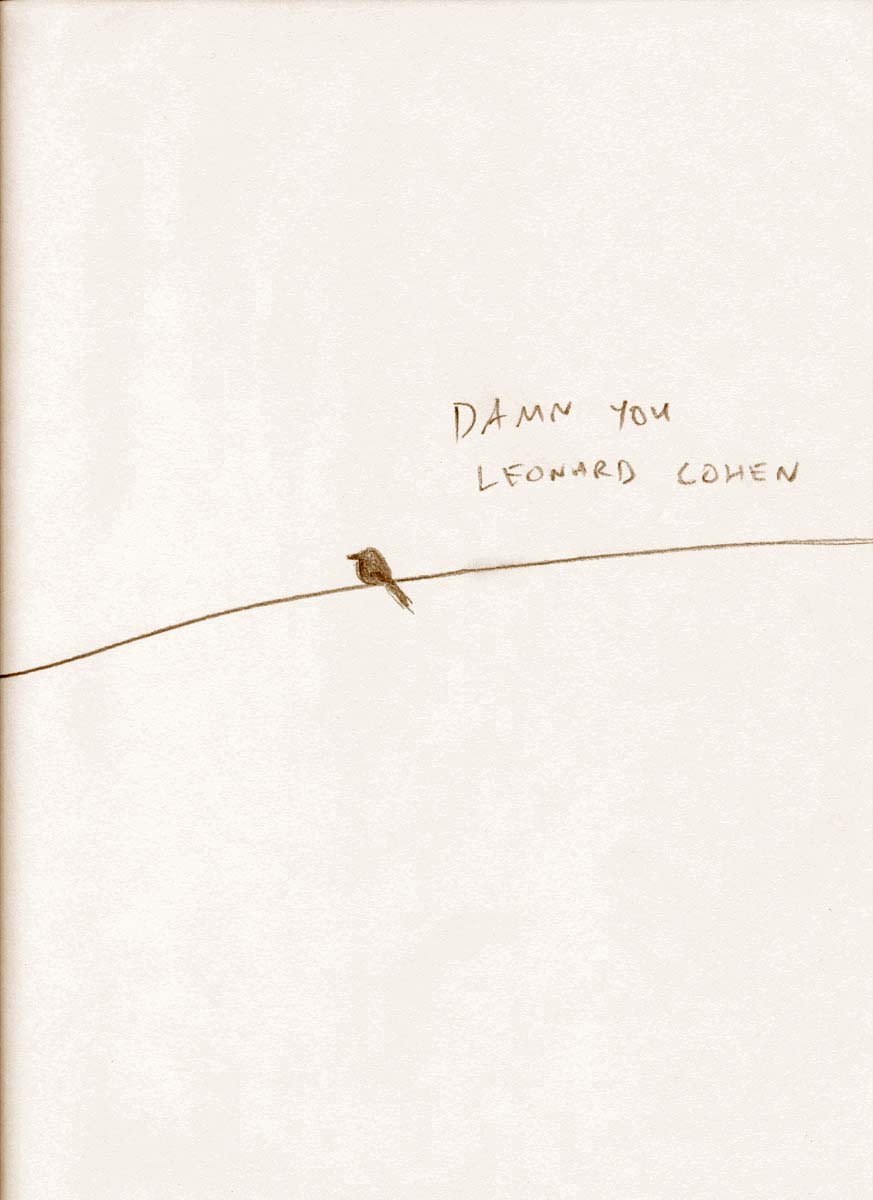 DAMN YOU
LEONARD COHEN